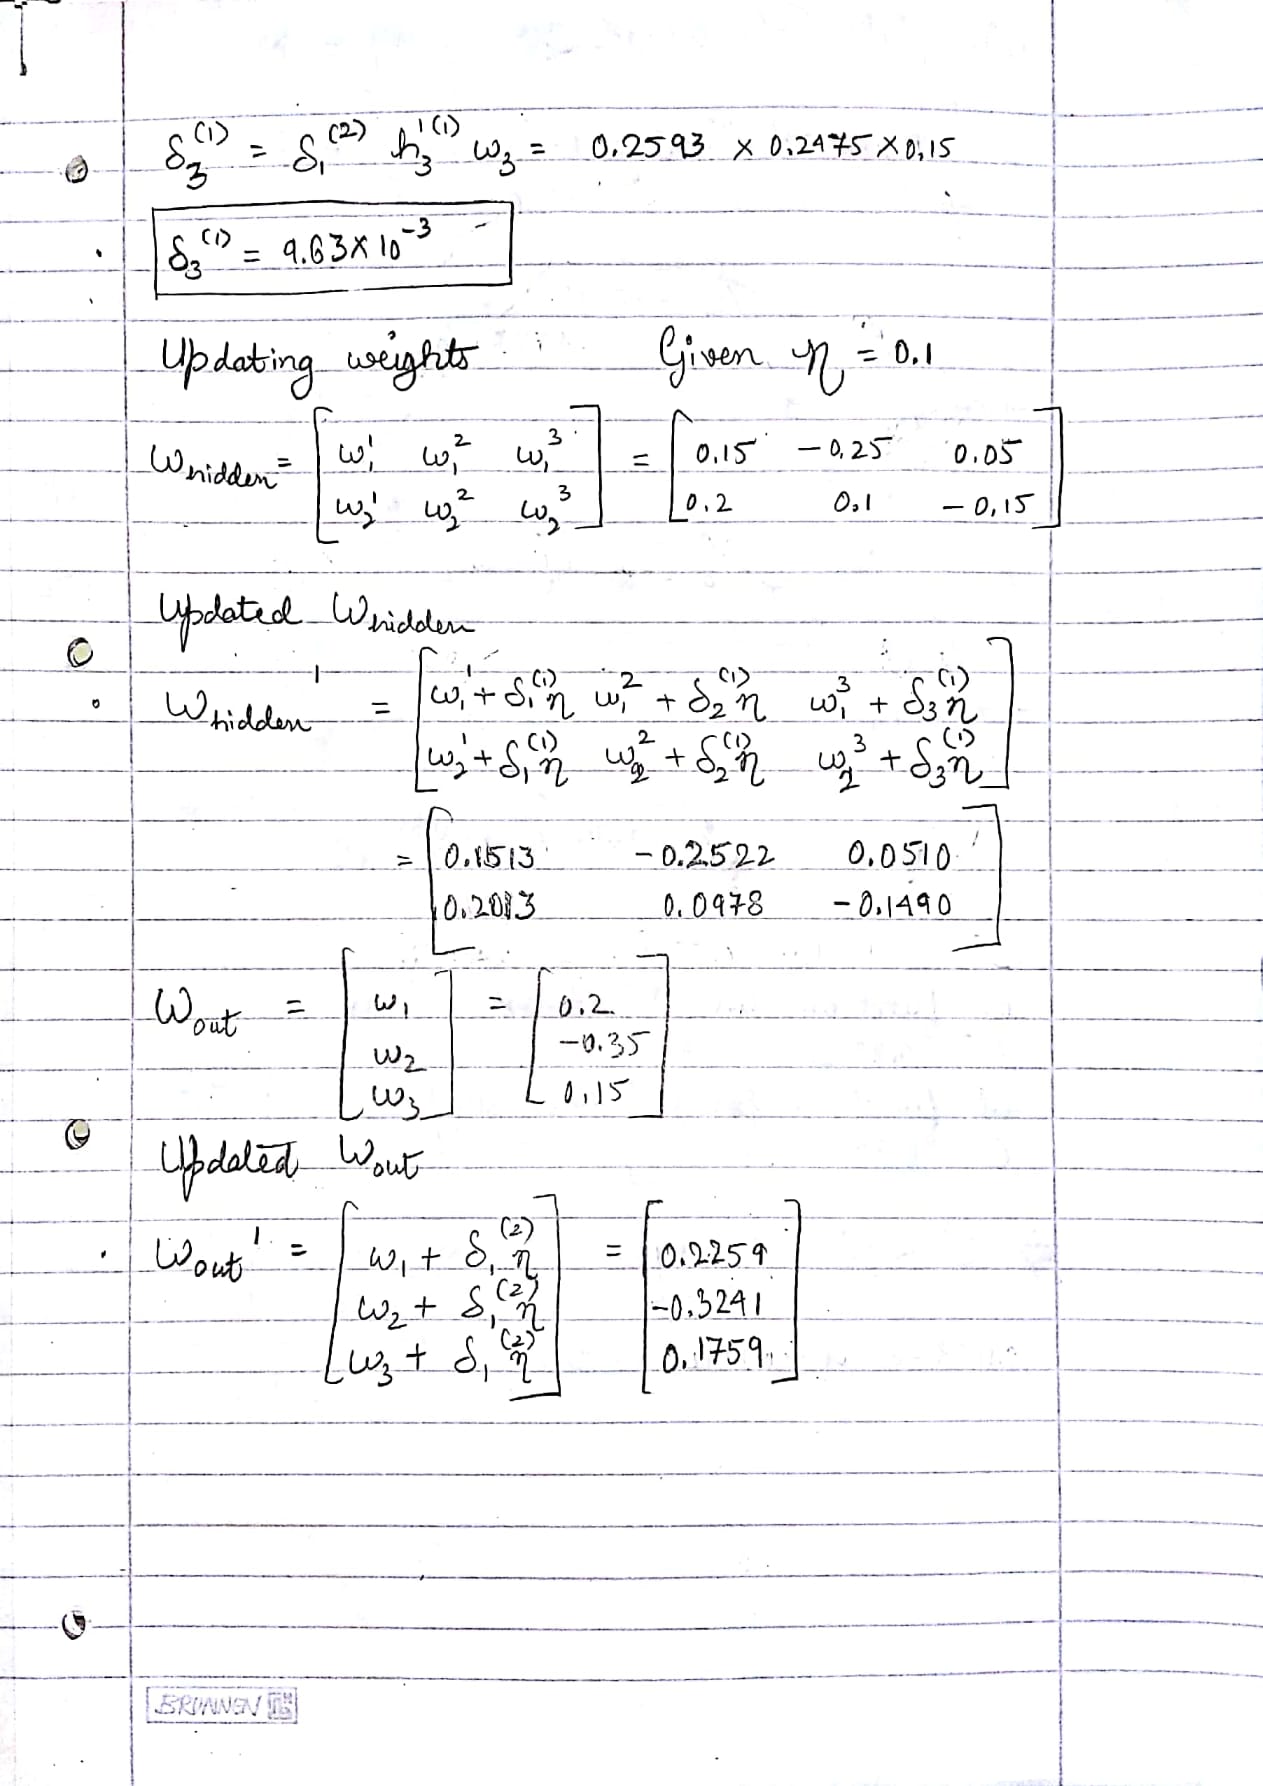 δ₃⁽¹⁾ = δ₁⁽²⁾ h₃'⁽¹⁾ w₃ = 0.2593 × 0.2475 × 0.15
δ₃⁽¹⁾ = 9.63 × 10⁻³
Updating weights Given η = 0.1
Whidden = [ w₁¹ w₁² w₁³ ] = [ 0.15 -0.25 0.05 ]
[ w₂¹ w₂² w₂³ ] [ 0.2 0.1 -0.15 ]
Updated Whidden
Whidden' = [ w₁¹ + δ₁⁽¹⁾η w₁² + δ₂⁽¹⁾η w₁³ + δ₃⁽¹⁾η ]
[ w₂¹ + δ₁⁽¹⁾η w₂² + δ₂⁽¹⁾η w₂³ + δ₃⁽¹⁾η ]
= [ 0.1513 -0.2522 0.0510 ]
[ 0.2013 0.0978 -0.1490 ]
Wout = [ w₁ ] = [ 0.2 ]
[ w₂ ] [ -0.35 ]
[ w₃ ] [ 0.15 ]
Updated Wout
Wout' = [ w₁ + δ₁⁽²⁾η ] = [ 0.2259 ]
[ w₂ + δ₁⁽²⁾η ] [ -0.3241 ]
[ w₃ + δ₁⁽²⁾η ] [ 0.1759 ]
BRUNNEN